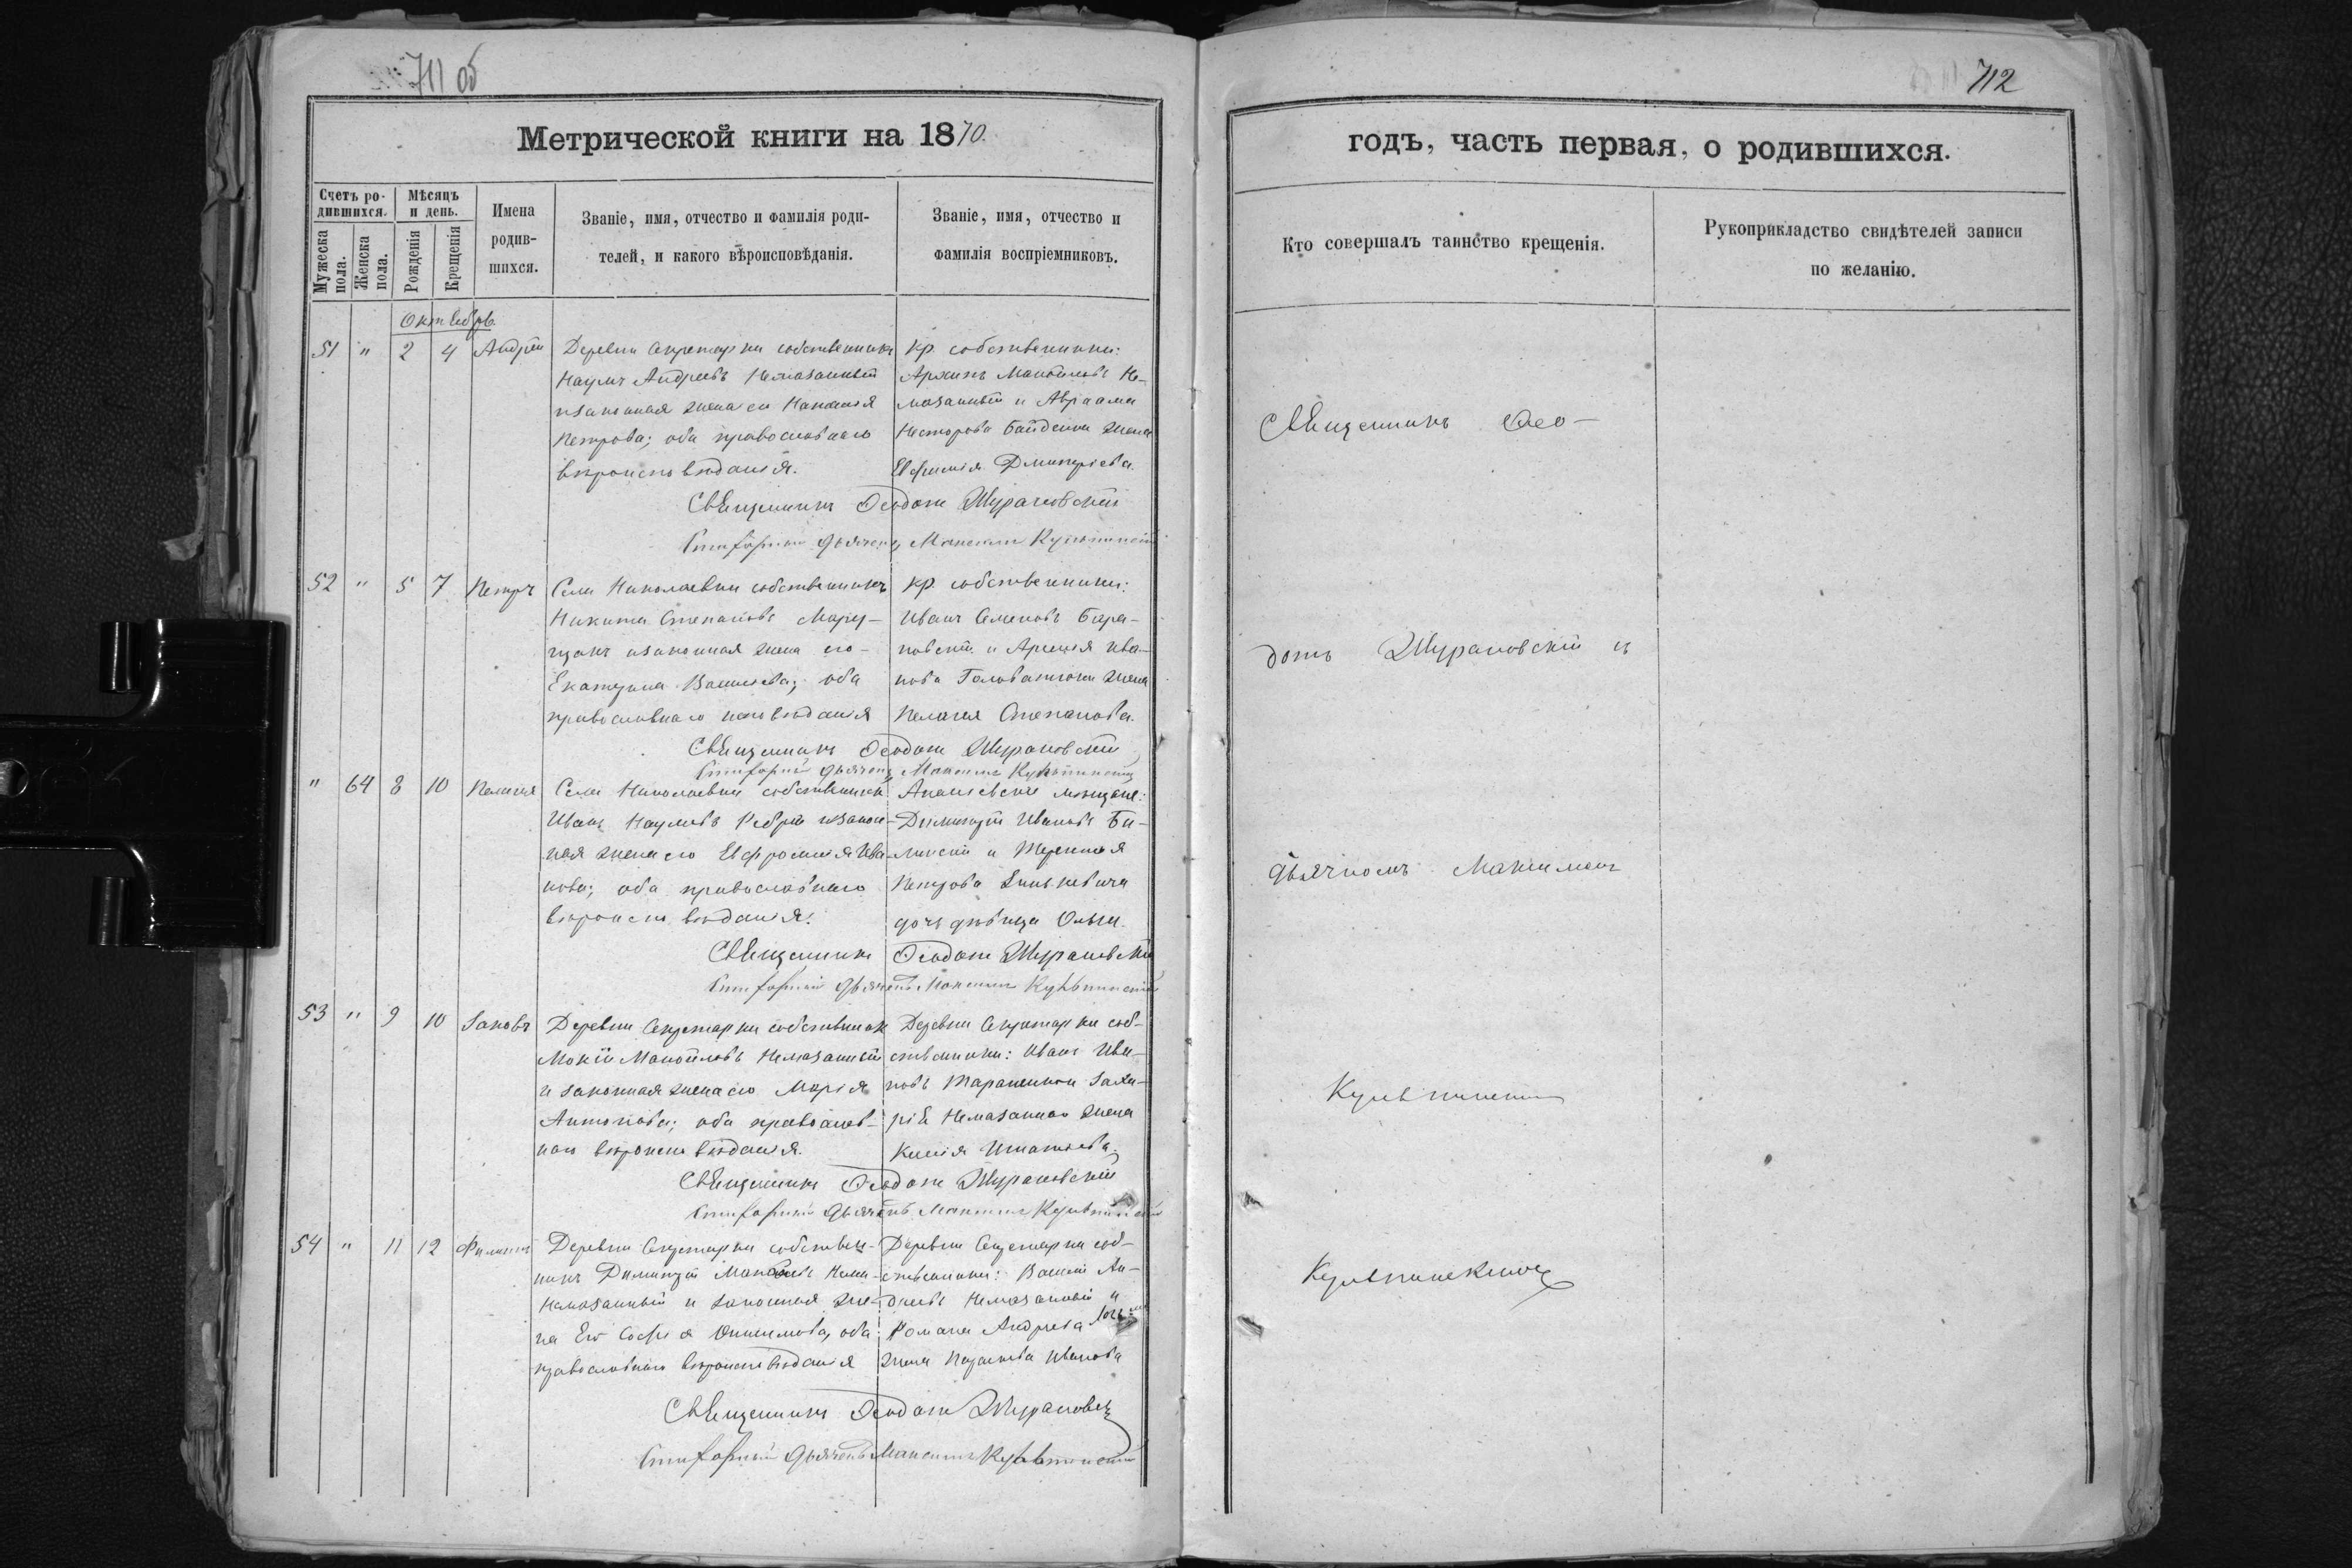 711 об
Метрической книги на 1870.
Счетъ ро-
дившихся.
Мужеска пола.
Женска пола.
Мѣсяцъ и день.
Рожденія
Крещенія
Имена родив-
шихся.
Званіе, имя, отчество и фамилія роди-
телей, и какого вѣроисповѣданія.
Званіе, имя, отчество и
фамилія воспріемниковъ.
Октябрь
51 " 2 4 Андрей
Деревни Секретарки собственникъ
Наумъ Андреевъ Немазанный
и законная жена его
Петрова; оба православнаго
вѣроисповѣданія.
Кр. собственники:
Архипъ Мануиловъ Не-
мазанный и Авраама
Несторова Байденка жена
Евфимія Дмитріева.
Священникъ Ѳеодотъ Шурановскій
Стихарный дьячекъ Максимъ
52 " 5 7 Петръ
Села Николаевки собственникъ
Никита Степановъ Мару-
щакъ и законная жена его
Екатерина Васильева; оба
православнаго исповѣданія
Кр. собственники:
Иванъ Семеновъ Бара-
новскій и Ива-
нова Головатюка жена
Пелагея Степанова.
Священникъ Ѳеодотъ Шурановскій
Стихарный дьячекъ Максимъ
" 64 8 10 Пелагея
Села Николаевки собственникъ
Иванъ Наумовъ и закон-
ная жена его Евфросинія Ива-
нова; оба православнаго
вѣроисповѣданія.
Ананьевскіе мѣщане:
Димитрій Ивановъ Би-
линскій и Терентія
Петрова Зинькевича
дочь дѣвица Ольга.
Священникъ Ѳеодотъ Шурановскій
Стихарный дьячекъ Максимъ
53 " 9 10 Іаковъ
Деревни Секретарки собственникъ
Мокій Мануиловъ Немазанный
и законная жена его Марія
Антонова; оба православ-
наго вѣроисповѣданія.
Деревни Секретарки соб-
ственники: Иванъ Ива-
новъ Тараненко и Заха-
рія Немазаннаго жена
Ксенія Игнатьева.
Священникъ Ѳеодотъ Шурановскій
Стихарный дьячекъ Максимъ
54 " 11 12 Филиппъ
Деревни Секретарки собствен-
никъ Димитрій Мануиловъ
Немазанный и законная же-
на Его Софія Онисимова, оба
православнаго вѣроисповѣданія
Деревни Секретарки соб-
ственники: Василій Ан-
дреевъ Немазанный и
Романа Андреева
жена Параскева Иванова
Священникъ Ѳеодотъ Шурановскій
Стихарный дьячекъ Максимъ
712
годъ, часть первая, о родившихся.
Кто совершалъ таинство крещенія.
Рукоприкладство свидѣтелей записи
по желанію.
Священникъ Ѳео-
дотъ Шурановскій съ
дьячкомъ Максимомъ